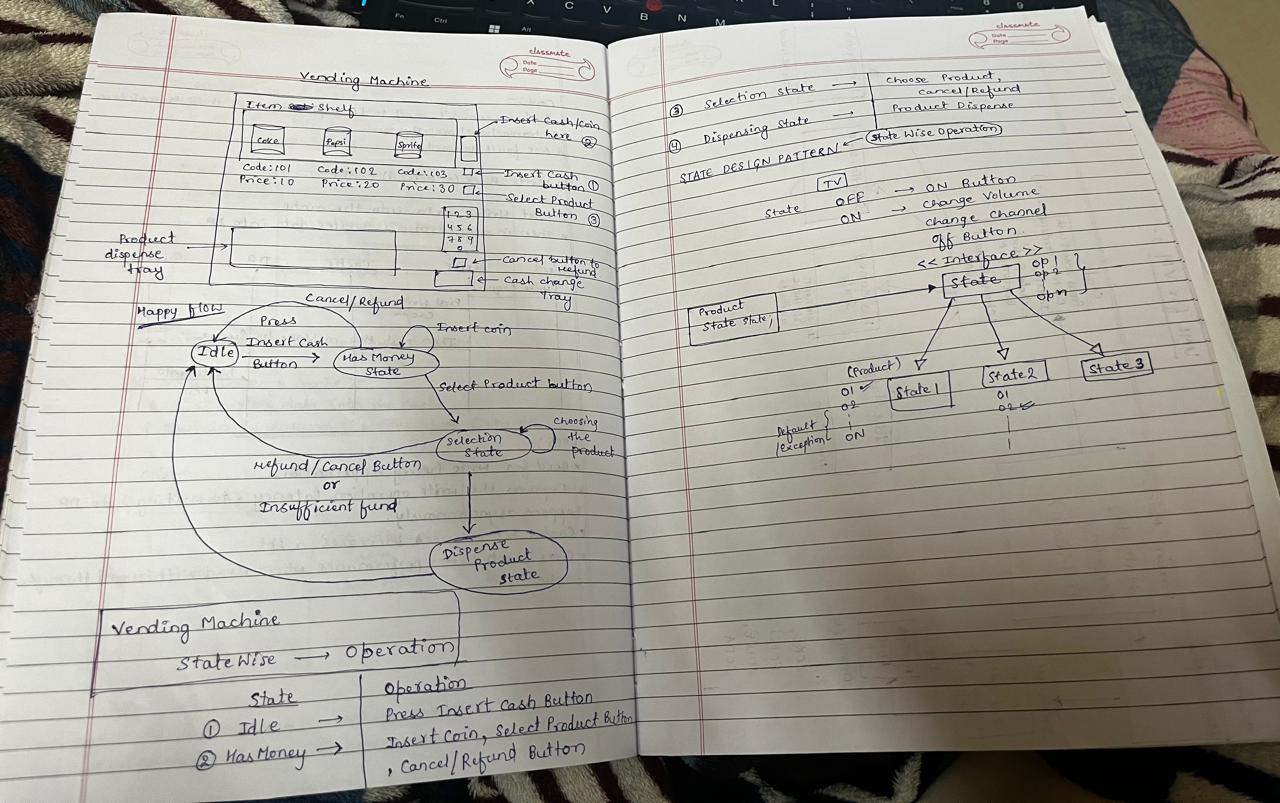 Vending Machine
classmate
Date
Page
Item Shelf
Coke
Pepsi
Sprite
Insert Cash/Coin
here ②
Code:101 Code:102 Code:103
Price:10 Price:20 Price:30
Insert Cash
button ①
Select Product
Button ③
1 2 3
4 5 6
7 8 9
0
Product
dispense
tray
Cancel button to
refund
Cash change
tray
Happy flow
Cancel/Refund
Press
Insert Cash
Button
Insert coin
Idle
Has Money
State
Select Product button
Selection
State
choosing
the
product
Refund/Cancel Button
or
Insufficient fund
Dispense
Product
State
Vending Machine
StateWise → Operation
State Operation
① Idle → Press Insert Cash Button
② HasMoney → Insert Coin, Select Product Button
, Cancel/Refund Button
classmate
Date
Page
③ Selection State → Choose Product,
Cancel/Refund
④ Dispensing State → Product Dispense
STATE DESIGN PATTERN ← State Wise Operation
TV
State OFF → ON Button
ON → Change Volume
change Channel
off Button
<< Interface >>
State
op1
op2
opn
Product
State state;
(Product)
State1
State2
State3
01
02
ON
Default
/Exception
01
02